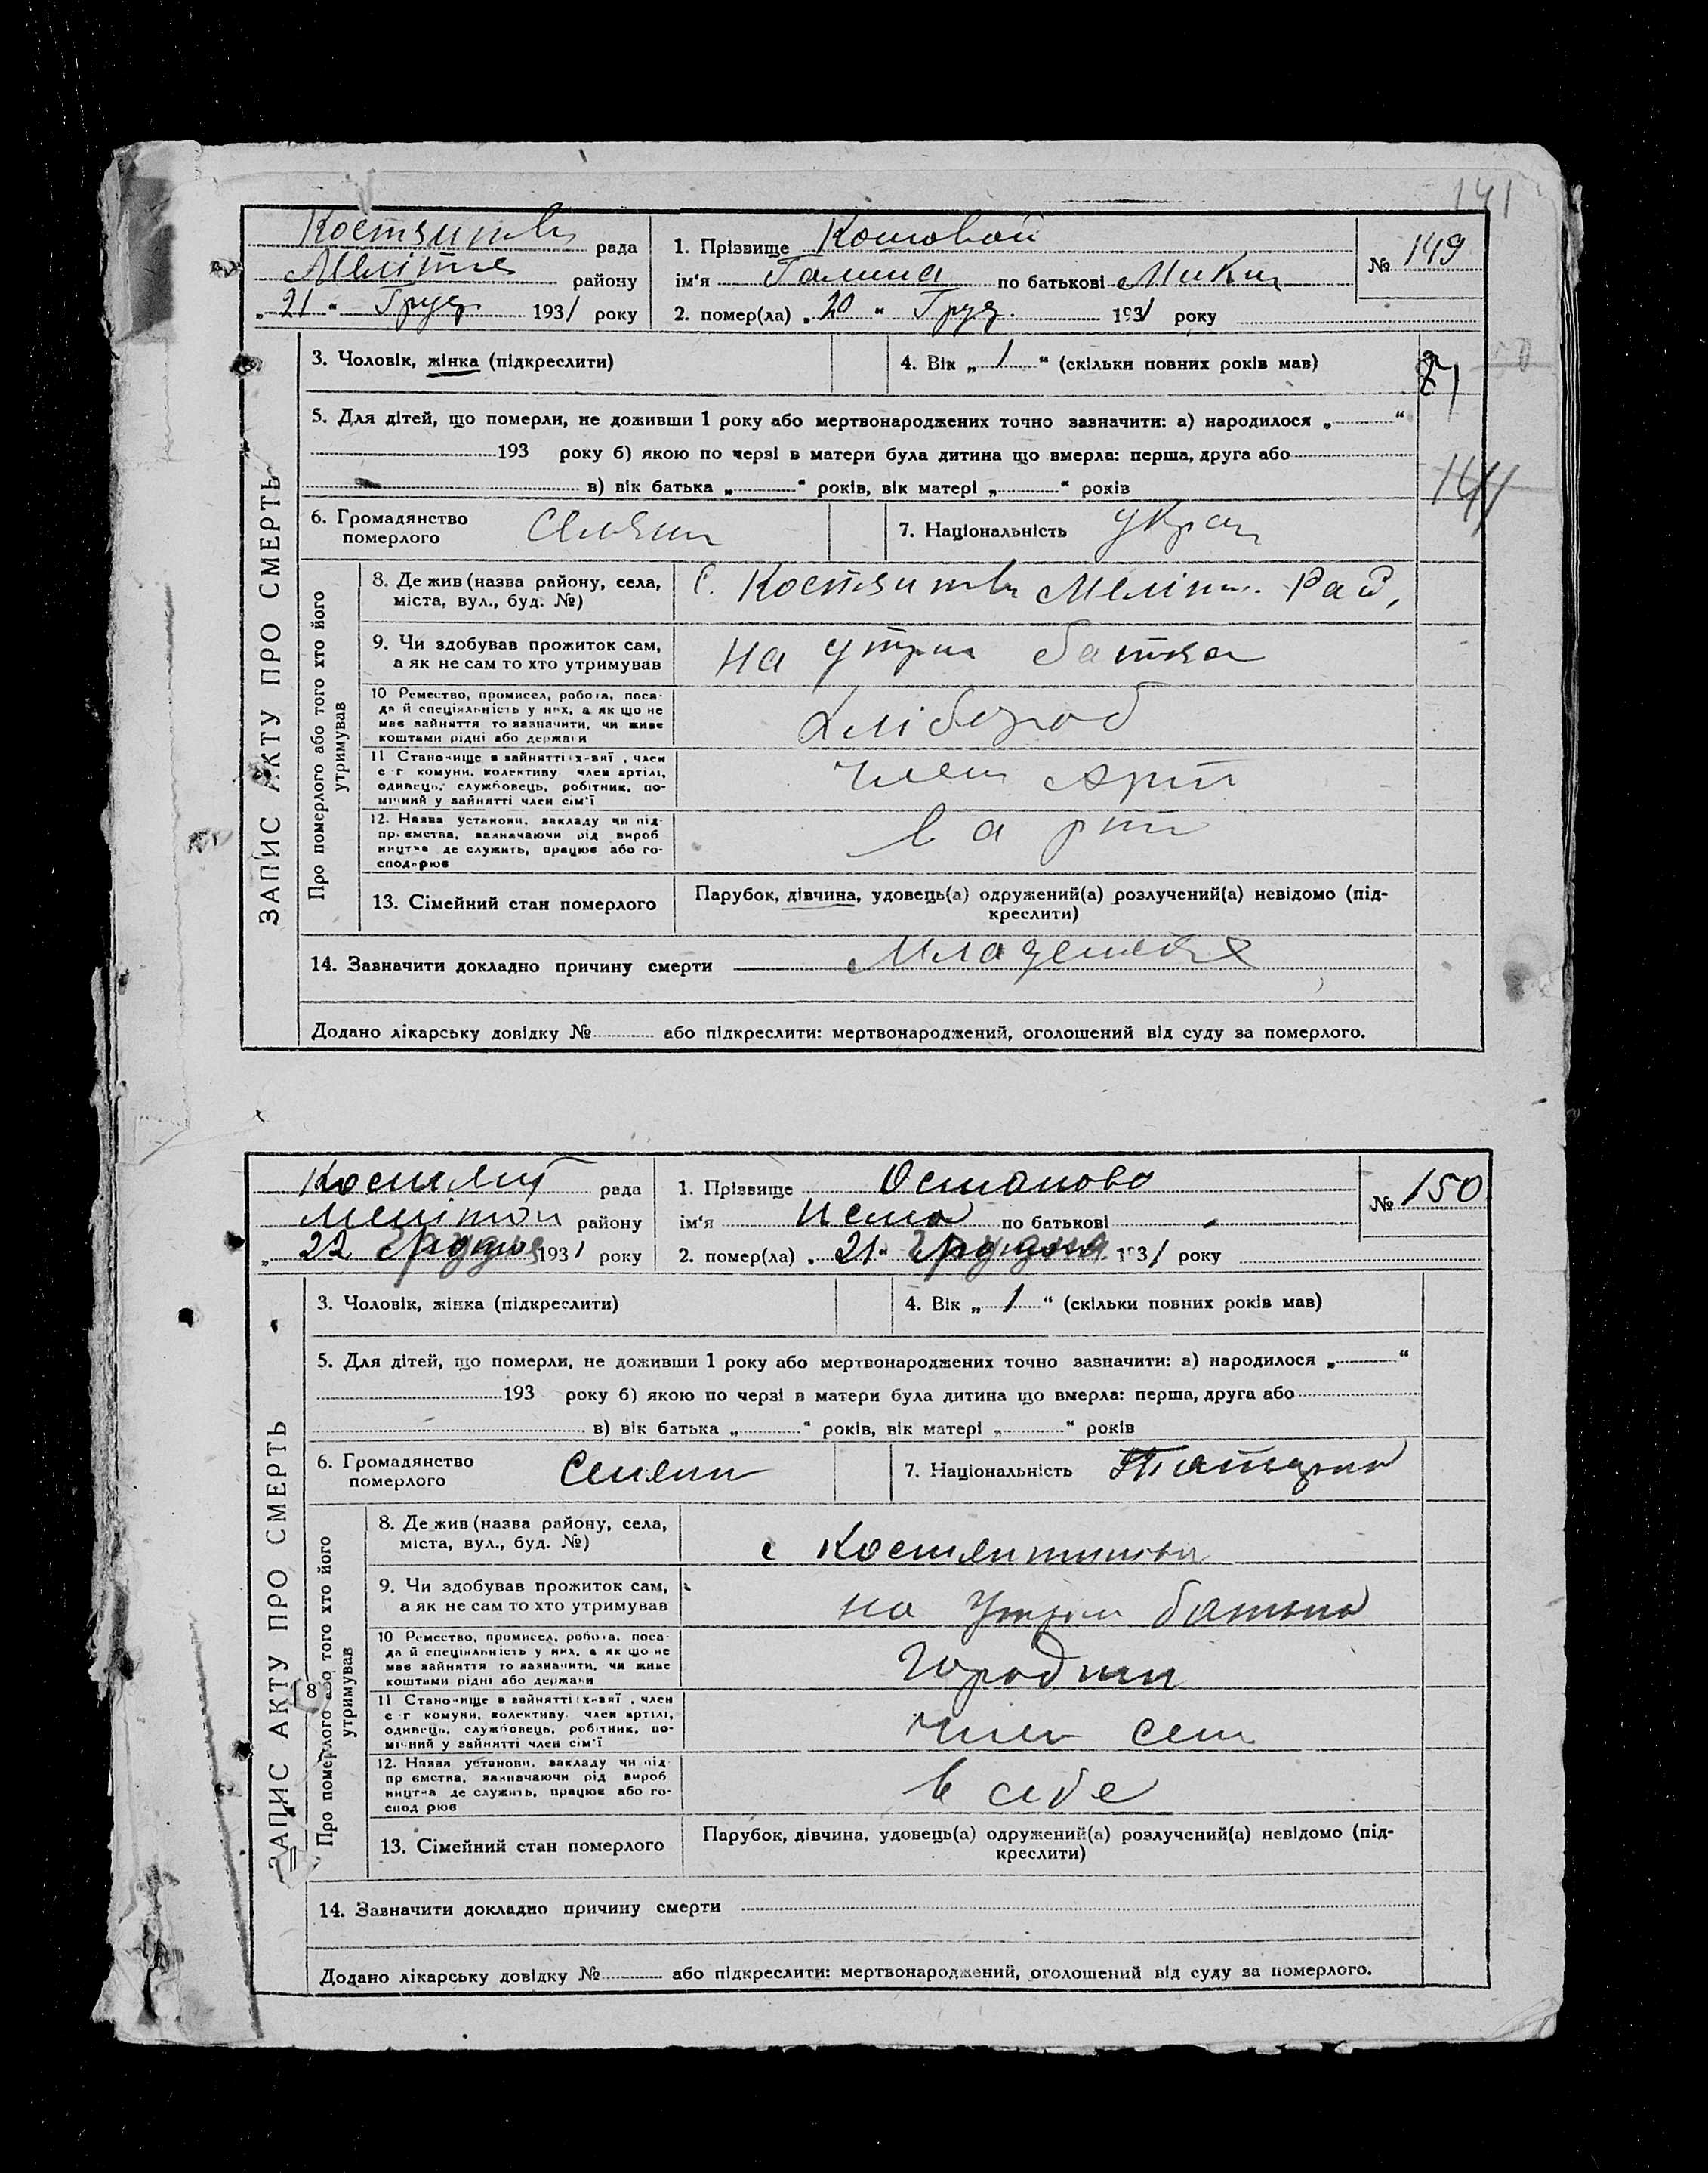 141
Костянтв рада
Меліт району
„21“ Груд. 1931 року
1. Прізвище Кошовой
ім'я Галина по батькові Мики
2. помер(ла) „20“ Груд. 1931 року
№ 149
ЗАПИС АКТУ ПРО СМЕРТЬ
3. Чоловік, жінка (підкреслити)
4. Вік „1“ (скільки повних років мав)
5. Для дітей, що померли, не доживши 1 року або мертвонароджених точно зазначити: а) народилося „ “
193 року б) якою по черзі в матери була дитина що вмерла: перша, друга або
в) вік батька „ “ років, вік матері „ “ років
6. Громадянство
померлого
Селян
7. Національність Укра
Про померлого або того хто його
утримував
8. Де жив (назва району, села,
міста, вул., буд. №)
С. Костянтв Меліт. Рад,
9. Чи здобував прожиток сам,
а як не сам то хто утримував
на утрим батька
10 Ремество, промисел, робота, поса-
да й спеціяльність у них, а як що не
має зайняття то зазначити, чи живе
коштами рідні або держави
Хлібороб
11 Становище в зайнятті: х-вяї, член
с-г комуни, колективу, член артілі,
одинець, службовець, робітник, по-
мічний у зайнятті член сім'ї
член Арт
12. Назва установи, закладу чи під-
приємства, зазначаючи рід вироб
ництва де служить, працює або го-
сподарює
в арт
13. Сімейний стан померлого
Парубок, дівчина, удовець(а) одружений(а) розлучений(а) невідомо (під-
креслити)
14. Зазначити докладно причину смерти
Додано лікарську довідку № або підкреслити: мертвонароджений, оголошений від суду за померлого.
рада
району
„22 грудня 1931 року
1. Прізвище Остапова
ім'я Нема по батькові -
2. помер(ла) „21“ грудня 1931 року
№ 150
ЗАПИС АКТУ ПРО СМЕРТЬ
3. Чоловік, жінка (підкреслити)
4. Вік „1“ (скільки повних років мав)
5. Для дітей, що померли, не доживши 1 року або мертвонароджених точно зазначити: а) народилося „ “
193 року б) якою по черзі в матери була дитина що вмерла: перша, друга або
в) вік батька „ “ років, вік матері „ “ років
6. Громадянство
померлого
Селян
7. Національність
Про померлого або того хто його
утримував
8. Де жив (назва району, села,
міста, вул., буд. №)
с Костянтинівка
9. Чи здобував прожиток сам,
а як не сам то хто утримував
на Утрим батька
10 Ремество, промисел, робота, поса-
да й спеціяльність у них, а як що не
має зайняття то зазначити, чи живе
коштами рідні або держави
11 Становище в зайнятті: х-вяї, член
с-г комуни, колективу, член артілі,
одинець, службовець, робітник, по-
мічний у зайнятті член сім'ї
член сем
12. Назва установи, закладу чи під-
приємства, зазначаючи рід вироб
ництва де служить, працює або го-
сподарює
в себе
13. Сімейний стан померлого
Парубок, дівчина, удовець(а) одружений(а) розлучений(а) невідомо (під-
креслити)
14. Зазначити докладно причину смерти
Додано лікарську довідку № або підкреслити: мертвонароджений, оголошений від суду за померлого.